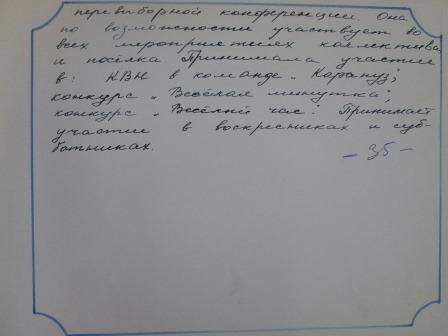 перевиборной конференции. Она
по возможности участвует во
всех мероприятиях коллектива
и посёлка. Принимала участие
в: КВН в команде „Карапуз";
конкурс „Весёлая минутка";
конкурс „Весёлый час". Принимает
участие в воскресниках и суб-
ботниках.
- 35 -